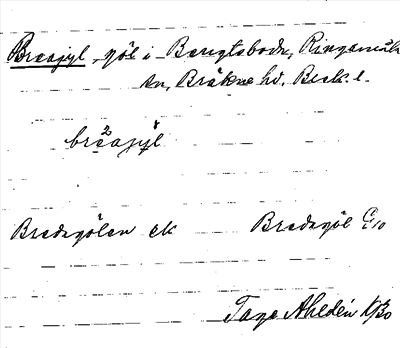 Breagyl, göl i Bengtsboda, Ringamåla
sn, Bräkne hd, Blek. l.
breagyl
Bredegölen ek Bredegöl G10
Tage Ahldén 1930